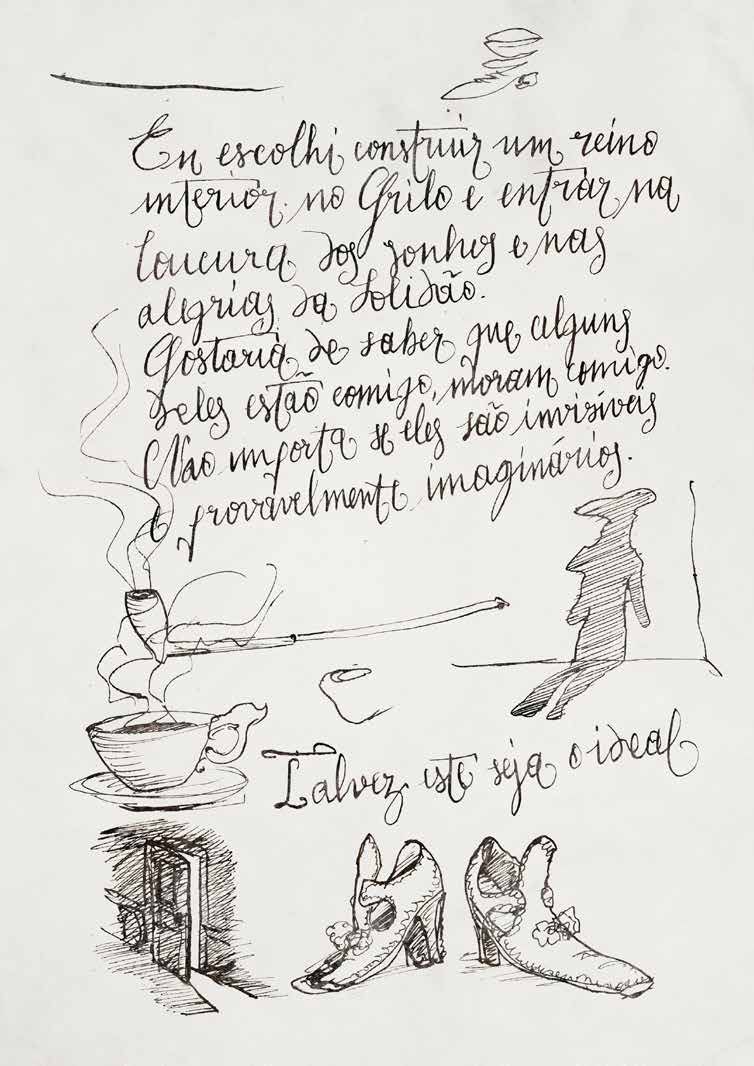 Eu escolhi construir um reino
interior no Grilo e entrar na
loucura dos sonhos e nas
alegrias da Solidão.
Gostaria de saber que alguns
deles estão comigo, moram comigo.
Não importa se eles são invisíveis
e provávelmente imaginários.
Talvez este seja o ideal